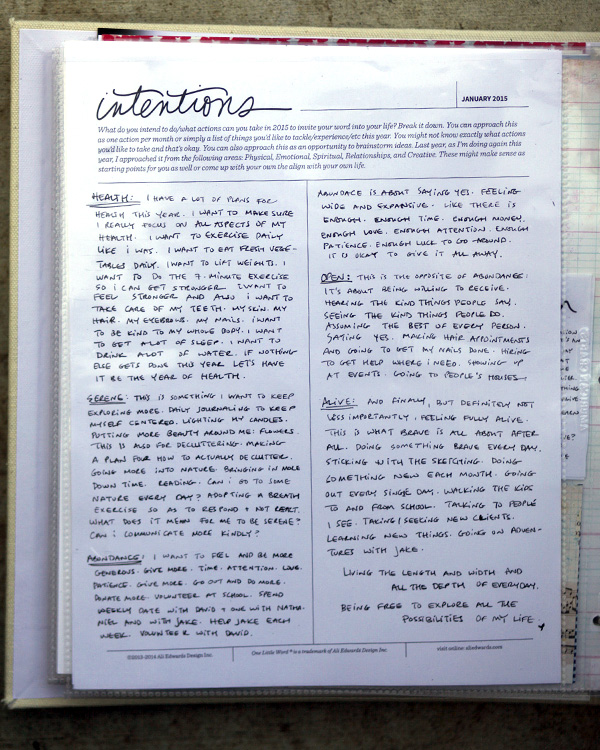 intentions
JANUARY 2015
What do you intend to do/what actions can you take in 2015 to invite your word into your life? Break it down. You can approach this
as one action per month or simply a list of things you'd like to tackle/experience/etc this year. You might not know exactly what actions
you'd like to take and that's okay. You can also approach this as an opportunity to brainstorm ideas. Last year, as I'm doing again this
year, I approached it from the following areas: Physical, Emotional, Spiritual, Relationships, and Creative. These might make sense as
starting points for you as well or come up with your own the align with your own life.
HEALTH: I HAVE A LOT OF PLANS FOR
HEALTH THIS YEAR. I WANT TO MAKE SURE
I REALLY FOCUS ON ALL ASPECTS OF MY
HEALTH. I WANT TO EXERCISE DAILY
LIKE I WAS. I WANT TO EAT FRESH VEGE-
TABLES DAILY. I WANT TO LIFT WEIGHTS. I
WANT TO DO THE 7-MINUTE EXERCISE
SO I CAN GET STRONGER. I WANT TO
FEEL STRONGER AND ALSO I WANT TO
TAKE CARE OF MY TEETH. MY SKIN. MY
HAIR. MY EYEBROWS. MY NAILS. I WANT
TO BE KIND TO MY WHOLE BODY. I WANT
TO GET A LOT OF SLEEP. I WANT TO
DRINK A LOT OF WATER. IF NOTHING
ELSE GETS DONE THIS YEAR LETS HAVE
IT BE THE YEAR OF HEALTH.
SERENE: THIS IS SOMETHING I WANT TO KEEP
EXPLORING MORE. DAILY JOURNALING TO KEEP
MYSELF CENTERED. LIGHTING MY CANDLES.
PUTTING MORE BEAUTY AROUND ME: FLOWERS.
THIS IS ALSO FOR DECLUTTERING. MAKING
A PLAN FOR HOW TO ACTUALLY DECLUTTER.
GOING MORE INTO NATURE. BRINGING IN MORE
DOWN TIME. READING. CAN I GO TO SOME
NATURE EVERY DAY? ADOPTING A BREATH
EXERCISE SO AS TO RESPOND + NOT REACT.
WHAT DOES IT MEAN FOR ME TO BE SERENE?
CAN I COMMUNICATE MORE KINDLY?
ABUNDANCE: I WANT TO FEEL AND BE MORE
GENEROUS. GIVE MORE. TIME. ATTENTION. LOVE.
PATIENCE. GIVE MORE. GO OUT AND DO MORE.
DONATE MORE. VOLUNTEER AT SCHOOL. SPEND
WEEKLY DATE WITH DAVID + ONE WITH NATHA-
NIEL AND WITH JAKE. HELP JAKE EACH
WEEK. VOLUNTEER WITH DAVID.
ABUNDACE IS ABOUT SAYING YES. FEELING
WIDE AND EXPANSIVE. LIKE THERE IS
ENOUGH. ENOUGH TIME. ENOUGH MONEY.
ENOUGH LOVE. ENOUGH ATTENTION. ENOUGH
PATIENCE. ENOUGH LUCK TO GO AROUND.
IT IS OKAY TO GIVE IT ALL AWAY.
OPEN: THIS IS THE OPPOSITE OF ABUNDANCE:
IT'S ABOUT BEING WILLING TO RECEIVE.
HEARING THE KIND THINGS PEOPLE SAY.
SEEING THE KIND THINGS PEOPLE DO.
ASSUMING THE BEST OF EVERY PERSON.
SAYING YES. MAKING HAIR APPOINTMENTS
AND GOING TO GET MY NAILS DONE. HIRING
TO GET HELP WHERE I NEED. SHOWING UP
AT EVENTS. GOING TO PEOPLE'S HOUSES.
ALIVE: AND FINALLY, BUT DEFINITELY NOT
LESS IMPORTANTLY. FEELING FULLY ALIVE.
THIS IS WHAT BRAVE IS ALL ABOUT AFTER
ALL. DOING SOMETHING BRAVE EVERY DAY.
STICKING WITH THE SKETCHING. DOING
SOMETHING NEW EACH MONTH. GOING
OUT EVERY SINGLE DAY. WALKING THE KIDS
TO AND FROM SCHOOL. TALKING TO PEOPLE
I SEE. TAKING/SEEKING NEW CLIENTS.
LEARNING NEW THINGS. GOING ON ADVEN-
TURES WITH JAKE.
LIVING THE LENGTH AND WIDTH AND
ALL THE DEPTH OF EVERYDAY.
BEING FREE TO EXPLORE ALL THE
POSSIBILITIES OF MY LIFE
©2013-2014 Ali Edwards Design Inc.
One Little Word ® is a trademark of Ali Edwards Design Inc.
visit online: aliedwards.com